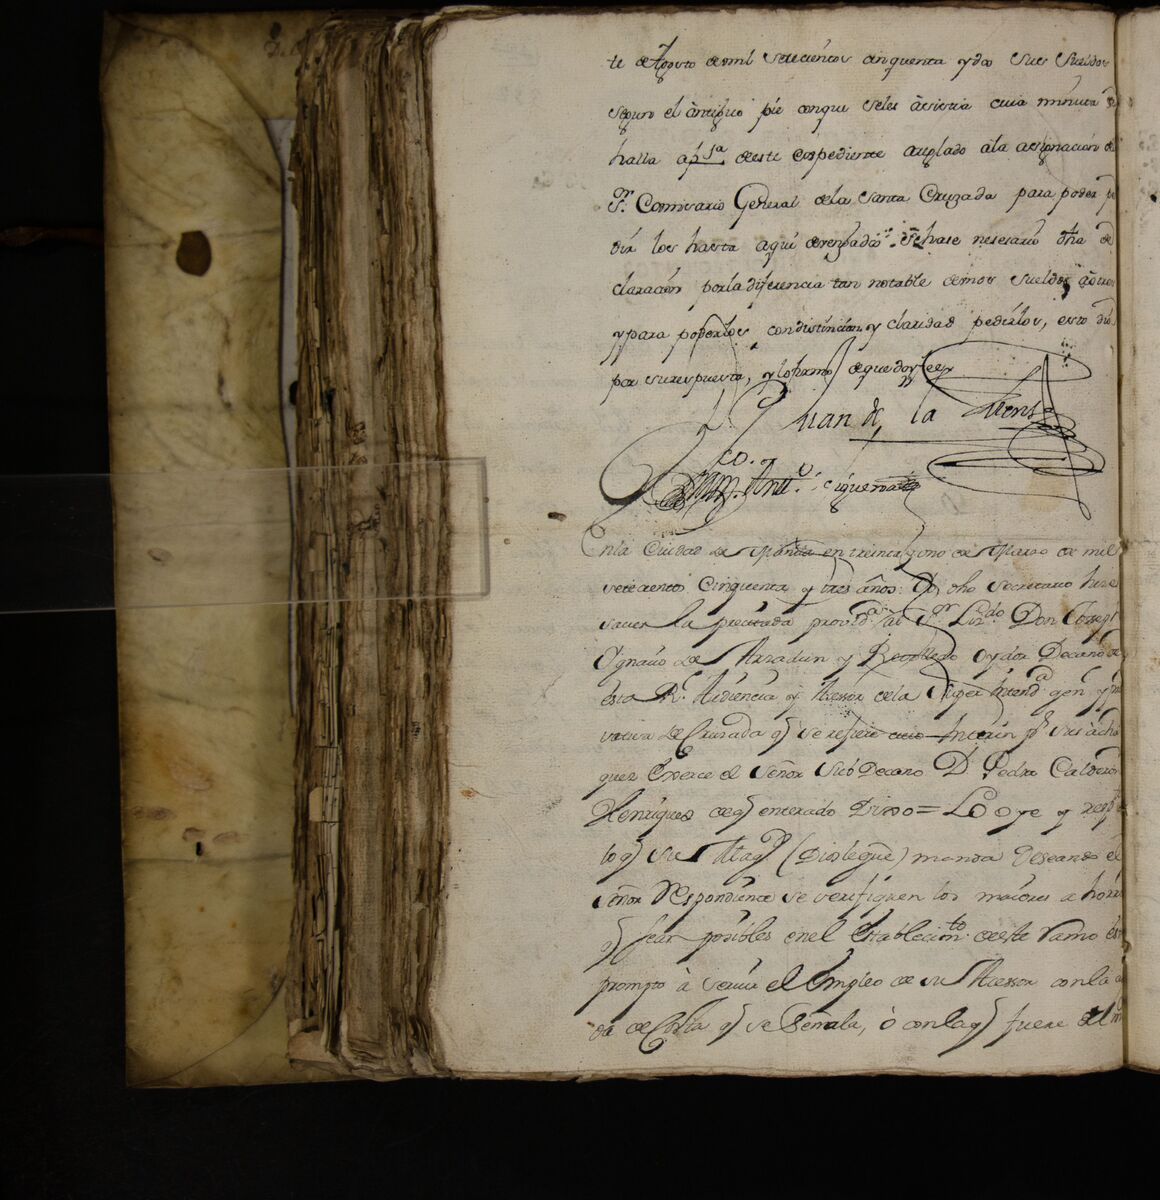 te de Agosto de mil setecientos cinquenta y dos sus sueldos
segun el antiguo pie conque seles asistia cuia minuta se
halla a p. 1ª de este Expediente arreglado ala asignacion de
Sr. Comisario General dela Santa Cruzada para poder pe
dir los hasta aqui devengados se hase nesesario dha de
claracion por la diferencia tan notable de unos sueldos à otros
y para poderlos con distincion y claridad pedirlos, esto dio
por su respuesta, y lo firmo de que doy fee
Juan de la
Franco. Antto. Cigueroa
En la Ciudad de Manila en treinta y uno de Marzo de mil
setecientos Cinquenta y tres años: Yo dho Secretario hise
saver la precitada provida. al Sr. Lizdo. Don Joseph
Ygnacio de Arzadun y Rebolledo Oydor Decano de
esta Rl. Audiencia y Asesor de la Super Intenda. gen y pri
vativa de Cruzada q se refiere cuio Interin pr. sus acha
ques Exerce el Señor Sub Decano Dn. Pedro Calderon
Henriques de q enterado Dixo = Lo oye y
lo q su Magd (Dios legue) manda Deseando el
Señor Respondiente se verifiquen los maiores ahorros
q sean posibles en el Establecimto. de este ramo está
prompto à servir el Empleo de su Asesor con la
da de Costa q se señala, ò con la q fuere del